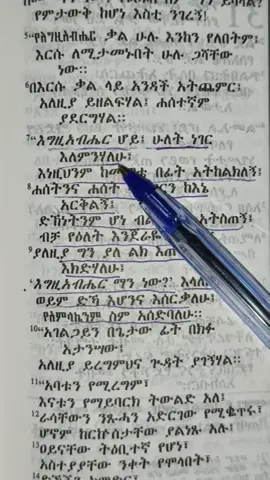 የምታውቅ ከሆነ እስቲ ንገረኝ!
5“የእግዚአብሔር ቃል ሁሉ እንከን የለበትም፤
እርሱ ለሚታመኑበት ሁሉ ጋሻቸው
ነው።
6በእርሱ ቃል ላይ አንዳች አትጨምር፤
አለዚያ ይዘልፍሃል፤ ሐሰተኛም
ያደርግሃል።
7“እግዚአብሔር ሆይ፤ ሁለት ነገር
እለምንሃለሁ፤
እነዚህንም በፊት አትከልክለኝ፤
8ሐሰትንና ሐሰት ከእኔ
አርቅልኝ፤
ድኽነትንም ሆነ አትስጠኝ፤
ብቻ የዕለት
9ያለዚያ ግን ያለ ልክ
እክድሃለሁ፤
‘እግዚአብሔር ማን ነው?’
ወይም ድኻ እሆንና እሰርቃለሁ፤
የአምላኬንም ስም አሰድባለሁ።
10“አገልጋይን በጌታው ፊት በክፉ
አታንሣው፤
አለዚያ ይረግምህና ጕዳት ያገኝሃል።
11“አባቱን የሚረግም፣
እናቱን የማይባርክ ትውልድ አለ፤
12ራሳቸውን ንጹሓን አድርገው የሚቈጥሩ፣
ሆኖም ከርኩሰታቸው ያልነጹ አሉ፤
13ዐይናቸው ትዕቢተኛ የሆነ፣
አስተያያቸው ንቀት የሞላበት፣